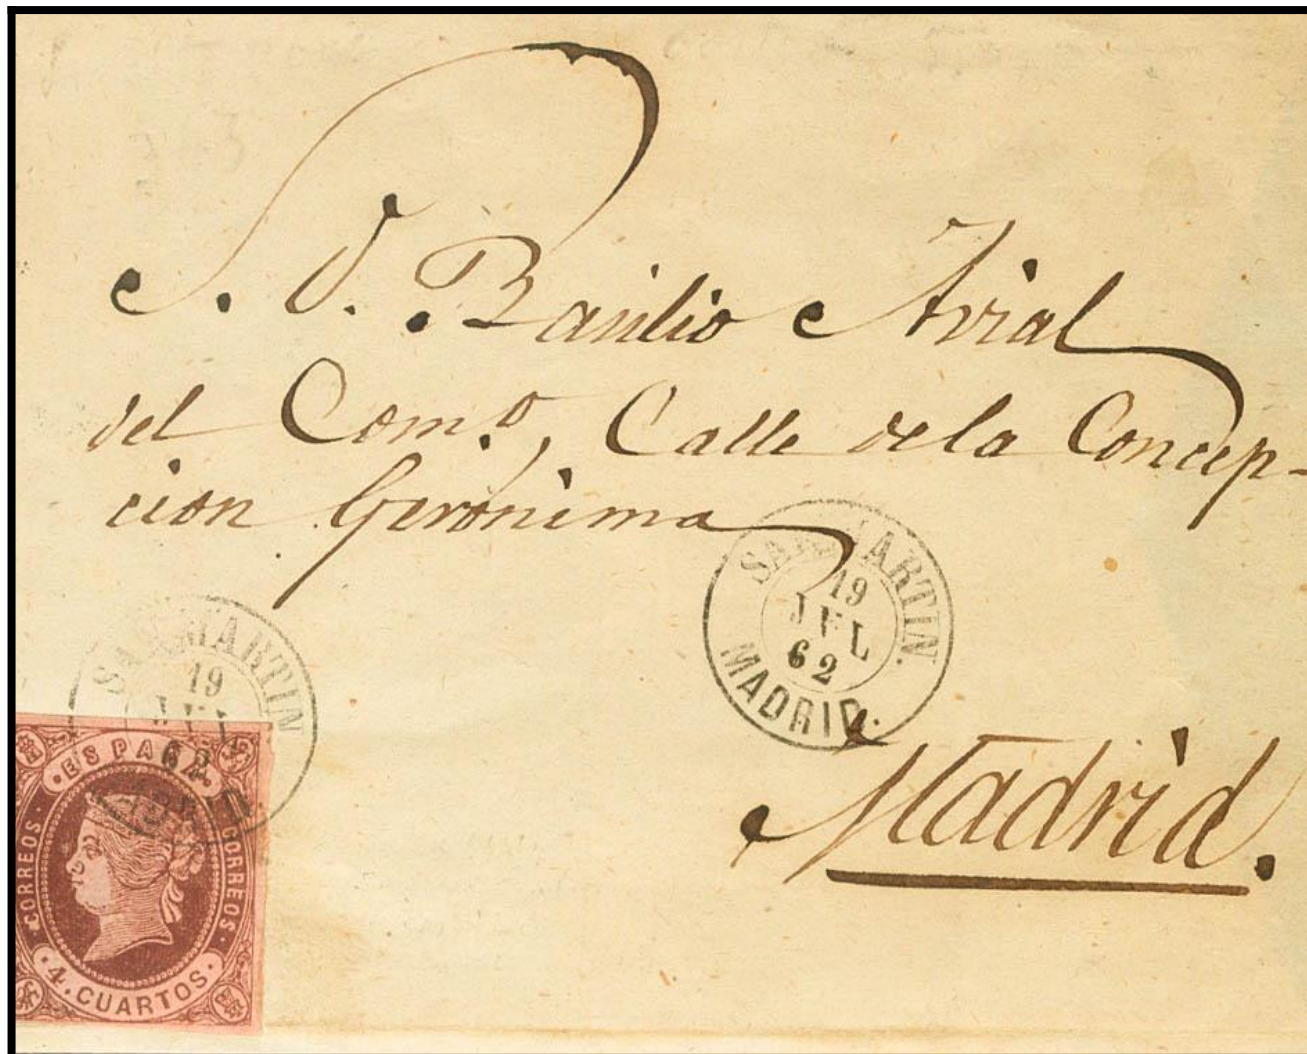 S. D. Basilio Avial
del Com.º, Calle de la Concep-
cion Geronima
SAN MARTIN.
19
JUL
62
MADRID.
SAN MARTIN
19
JUL
62
MADRID.
Madrid.
ESPAÑA
CORREOS
CORREOS
4. CUARTOS.